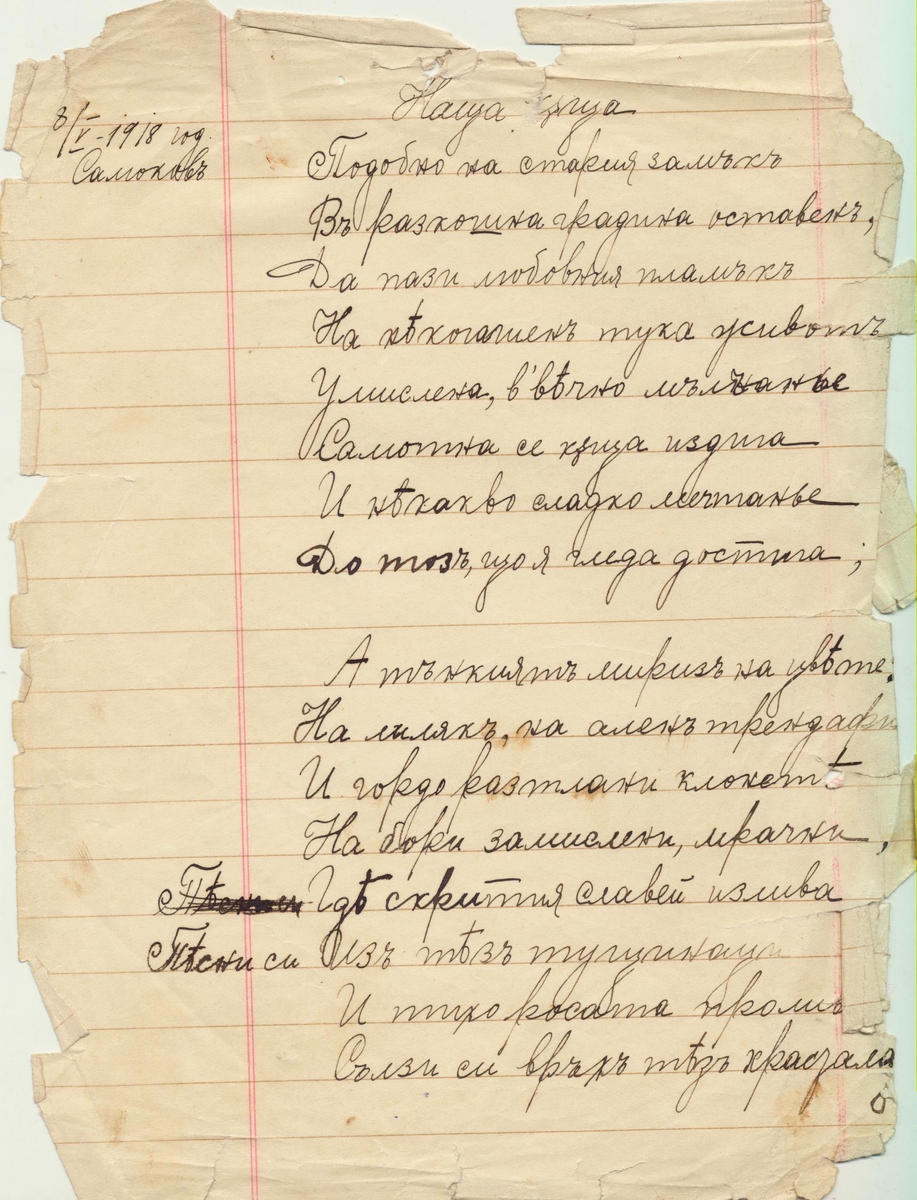 8/V-1918 год.
Самоковъ
Наща кѫща
Подобно на стария замъкъ
Въ разкошна градина оставенъ,
Да пази любовния пламъкъ
На нѣкогашенъ тука животъ
Умислена, в'вѣчно мълчанье
Самотна се кѫща издига
И нѣкакво сладко мечтанье
До тозъ, що я гледа достига;
А тънкиятъ миризъ на цвѣте,
На лилякъ, на аленъ трендафи
И гордо разтлани клонетѣ
На бори замислени, мрачни,
Пѣсни си Гдѣ скрития славей излива
Пѣсни си Изъ тѣзъ
И тихо росата
Сълзи си връхъ тѣзъ